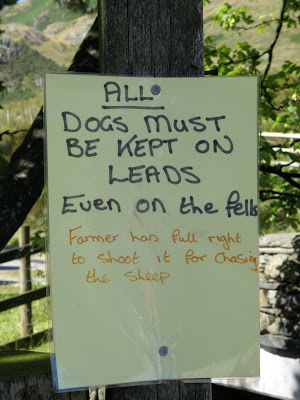 ALL
DOGS MUST
BE KEPT ON
LEADS
Even on the fells
Farmer has full right
to shoot it for chasing
the sheep